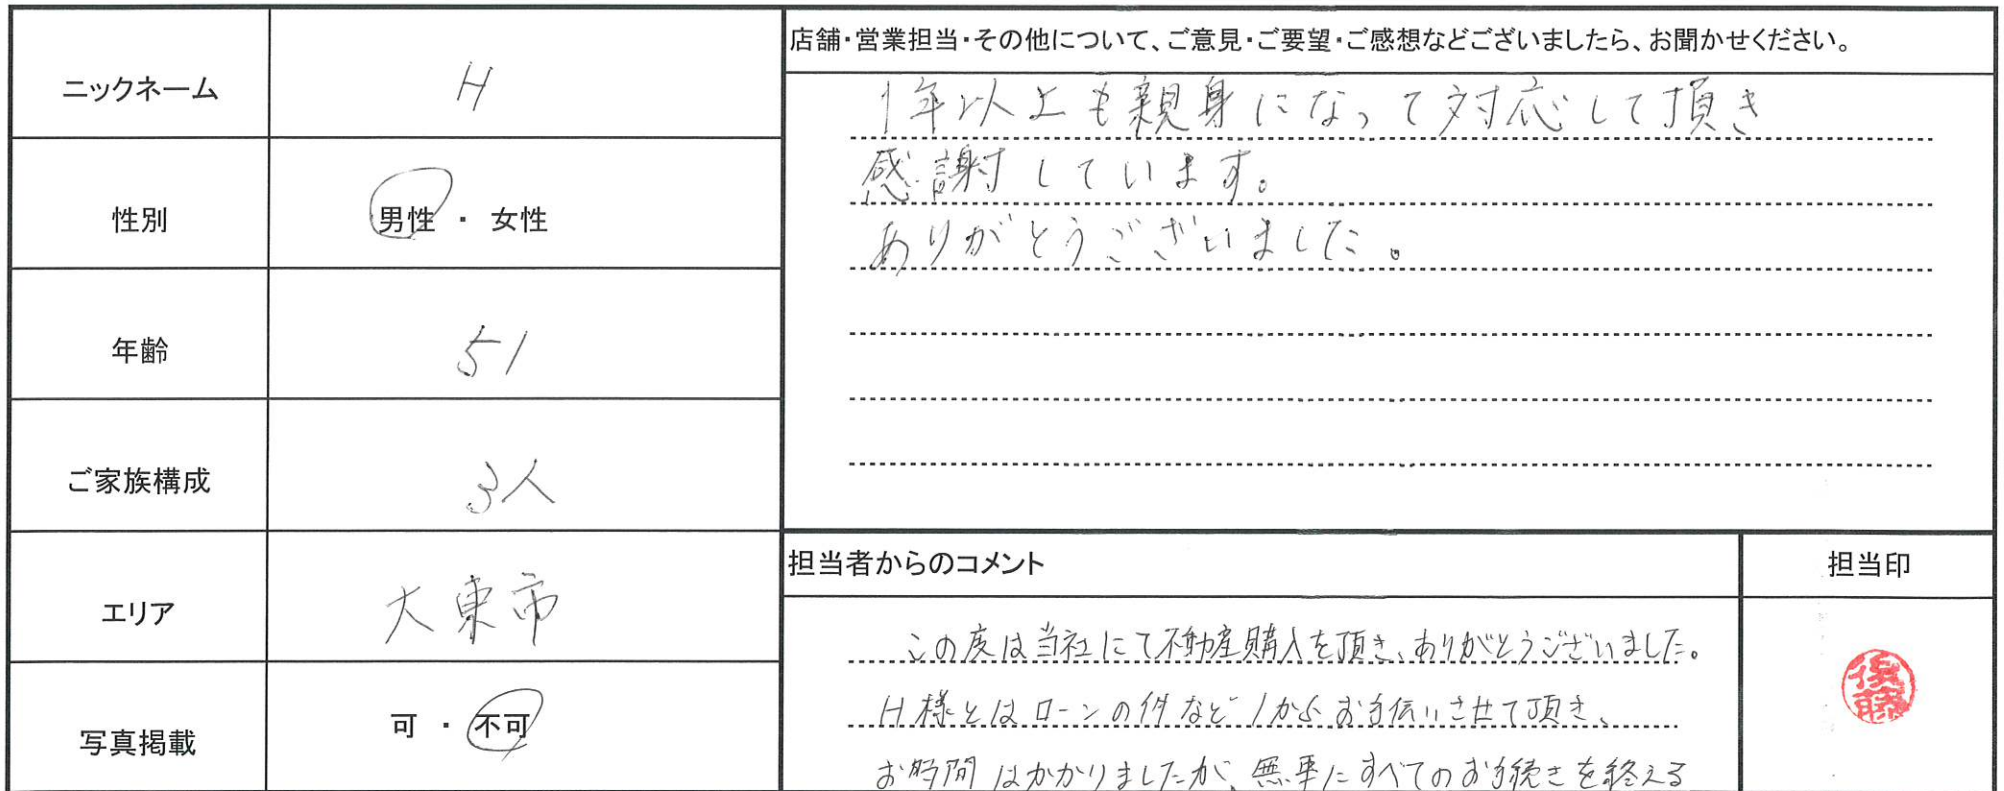 ニックネーム
H
性別
男性 ・ 女性
年齢
51
ご家族構成
3人
エリア
大東市
写真掲載
可 ・ 不可
店舗・営業担当・その他について、ご意見・ご要望・ご感想などございましたら、お聞かせください。
1年以上も親身になって対応して頂き
感謝しています。
ありがとうございました。
担当者からのコメント
この度は当社にて不動産購入を頂き、ありがとうございました。
H様とはローンの件など1からお手伝いさせて頂き、
お時間はかかりましたが、無事にすべてのお手続きを終える
担当印
後藤